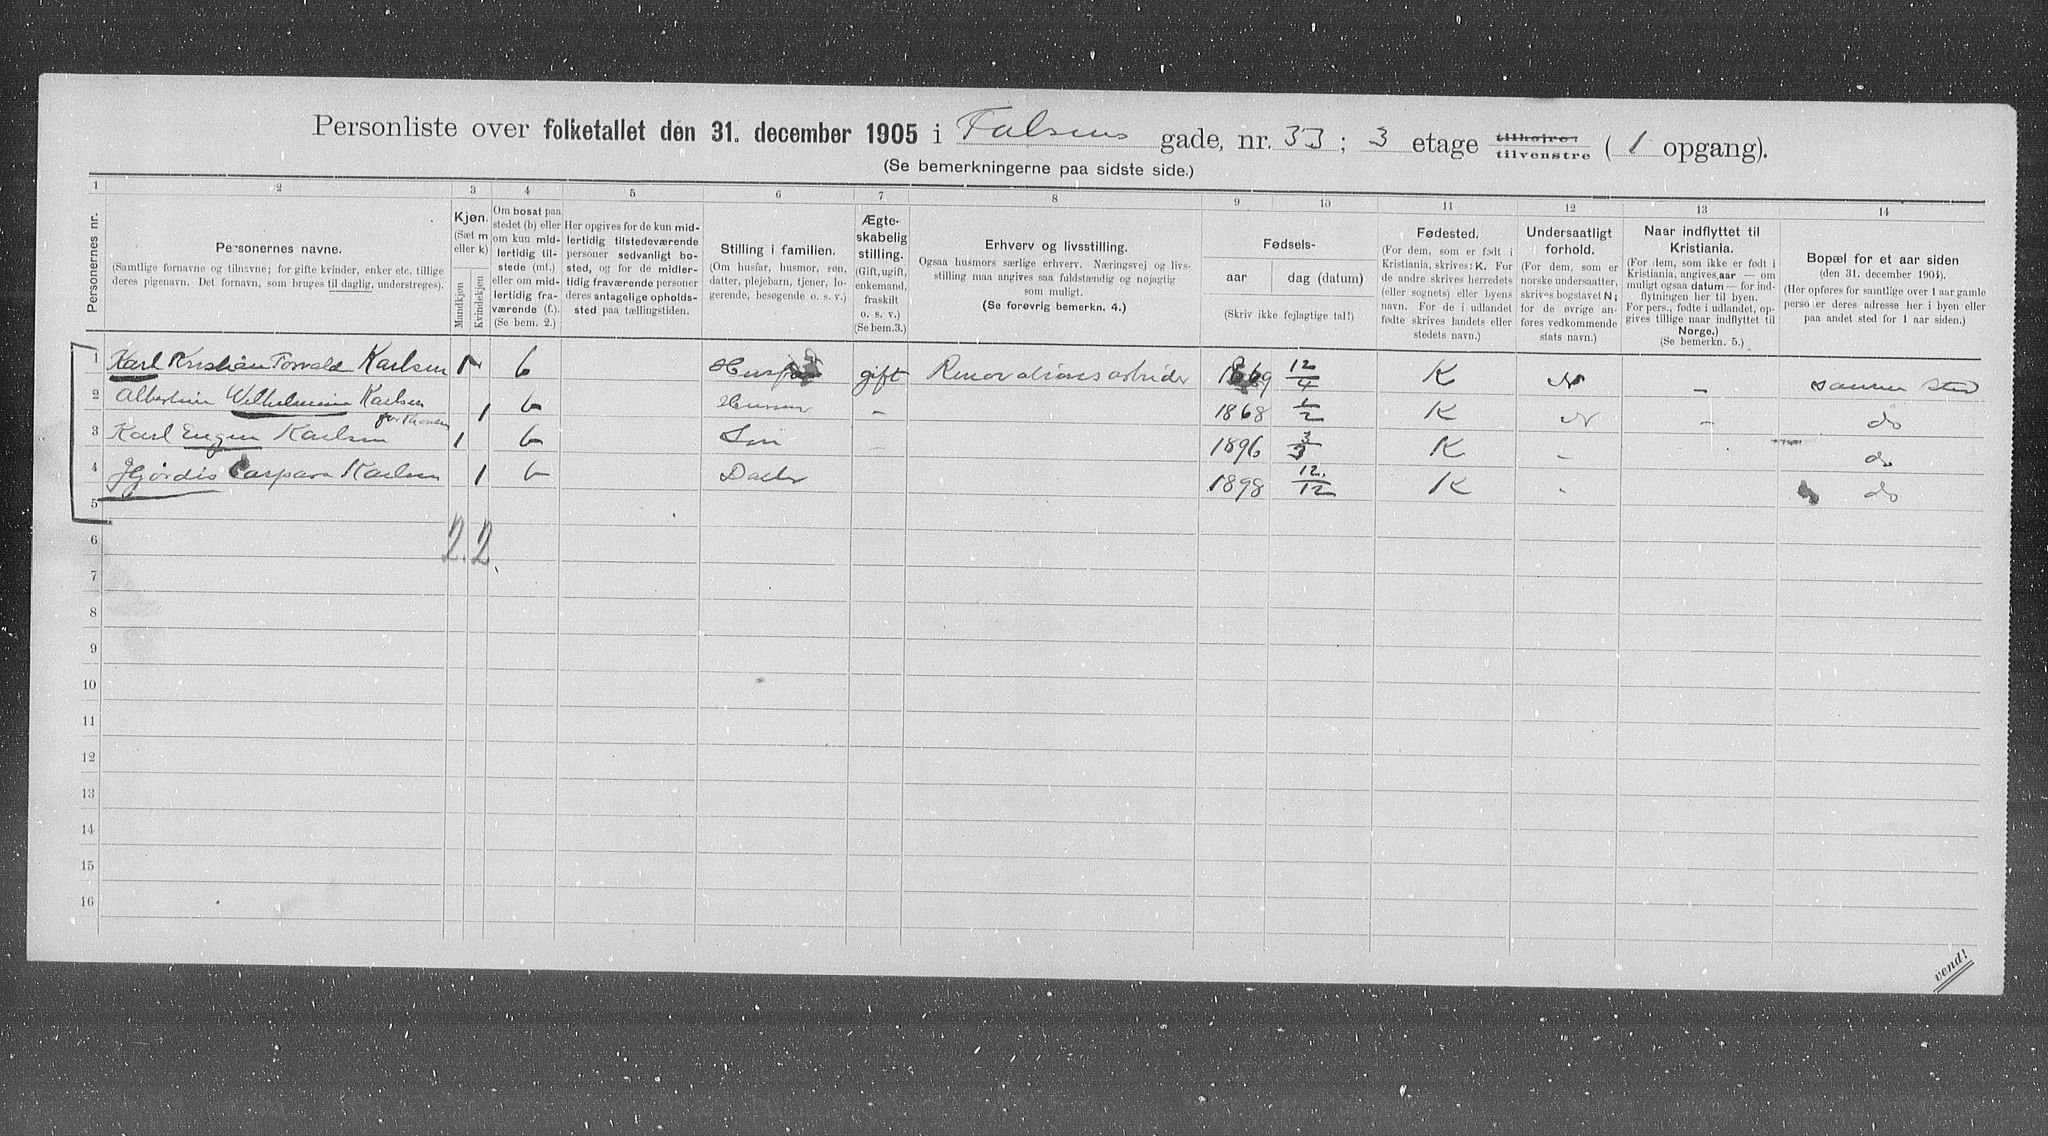 Personliste over folketallet den 31. december 1905 i Falsens gade, nr. 33; 3 etage tilhøjre, tilvenstre (1 opgang).
(Se bemerkningerne paa sidste side.)
1 2 3 4 5 6 7 8 9 10 11 12 13 14
Personernes nr.
Personernes navne.
(Samtlige fornavne og tilnavne; for gifte kvinder, enker etc. tillige
deres pigenavn. Det fornavn, som bruges til daglig, understreges).
Kjøn.
(Sæt m
eller k)
Mandkjøn
Kvindekjøn
Om bosat paa
stedet (b) eller
om kun mid-
lertidig til-
stede (mt.)
eller om mid-
lertidig fra-
værende (f.).
(Se bem. 2.)
Her opgives for de kun mid-
lertidig tilstedeværende
personer sedvanligt bo-
sted, og for de midler-
tidig fraværende personer
deres antagelige opholds-
sted paa tællingstiden.
Stilling i familien.
(Om husfar, husmor, søn,
datter, plejebarn, tjener, lo-
gerende, besøgende o. s. v.)
Ægte-
skabelig
stilling.
(Gift, ugift,
enkemand,
fraskilt
o. s. v.)
(Se bem. 3.)
Erhverv og livsstilling.
Ogsaa husmors særlige erhverv. Næringsvej og livs-
stilling maa angives saa fuldstændig og nøjagtig
som muligt.
(Se forøvrig bemerkn. 4.)
Fødsels-
aar dag (datum)
(Skriv ikke fejlagtige tal!)
Fødested.
(For dem, som er født i
Kristiania, skrives: K. For
de andre skrives herredets
(eller sognets) eller byens
navn. For de i udlandet
fødte skrives landets eller
stedets navn.)
Undersaatligt
forhold.
(For dem, som er
norske undersaatter,
skrives bogstavet N;
for de øvrige an-
føres vedkommende
stats navn.)
Naar indflyttet til
Kristiania.
(For dem, som ikke er født i
Kristiania, angives aar — om
muligt ogsaa datum — for ind-
flytningen her til byen.
For pers., fødte i udlandet, op-
gives tillige naar indflyttet til
Norge.)
(Se bemerkn. 5.)
Bopæl for et aar siden
(den 31. december 1904).
(Her opføres for samtlige over 1 aar gamle
personer deres adresse her i byen eller
paa andet sted for 1 aar siden.)
1 Karl Kristian Torvald Karlsen 1 b Husfar gift Renovationsarbeider 1869 12/4 K N - samme sted
2 Albertine Wilhelmine Karlsen 1 b Husmor - 1868 1/2 K N - do
3 Karl Eugen Karlsen 1 b Søn - 1896 3/3 K - do
4 Hjørdis Caspara Karlsen 1 b Datter 1898 12/12 K - do
5
2. 2
6
7
8
9
10
11
12
13
14
15
16
vend!